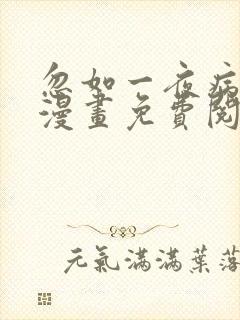 忽如一夜病
漫畫免費閱
元氣滿滿葉落